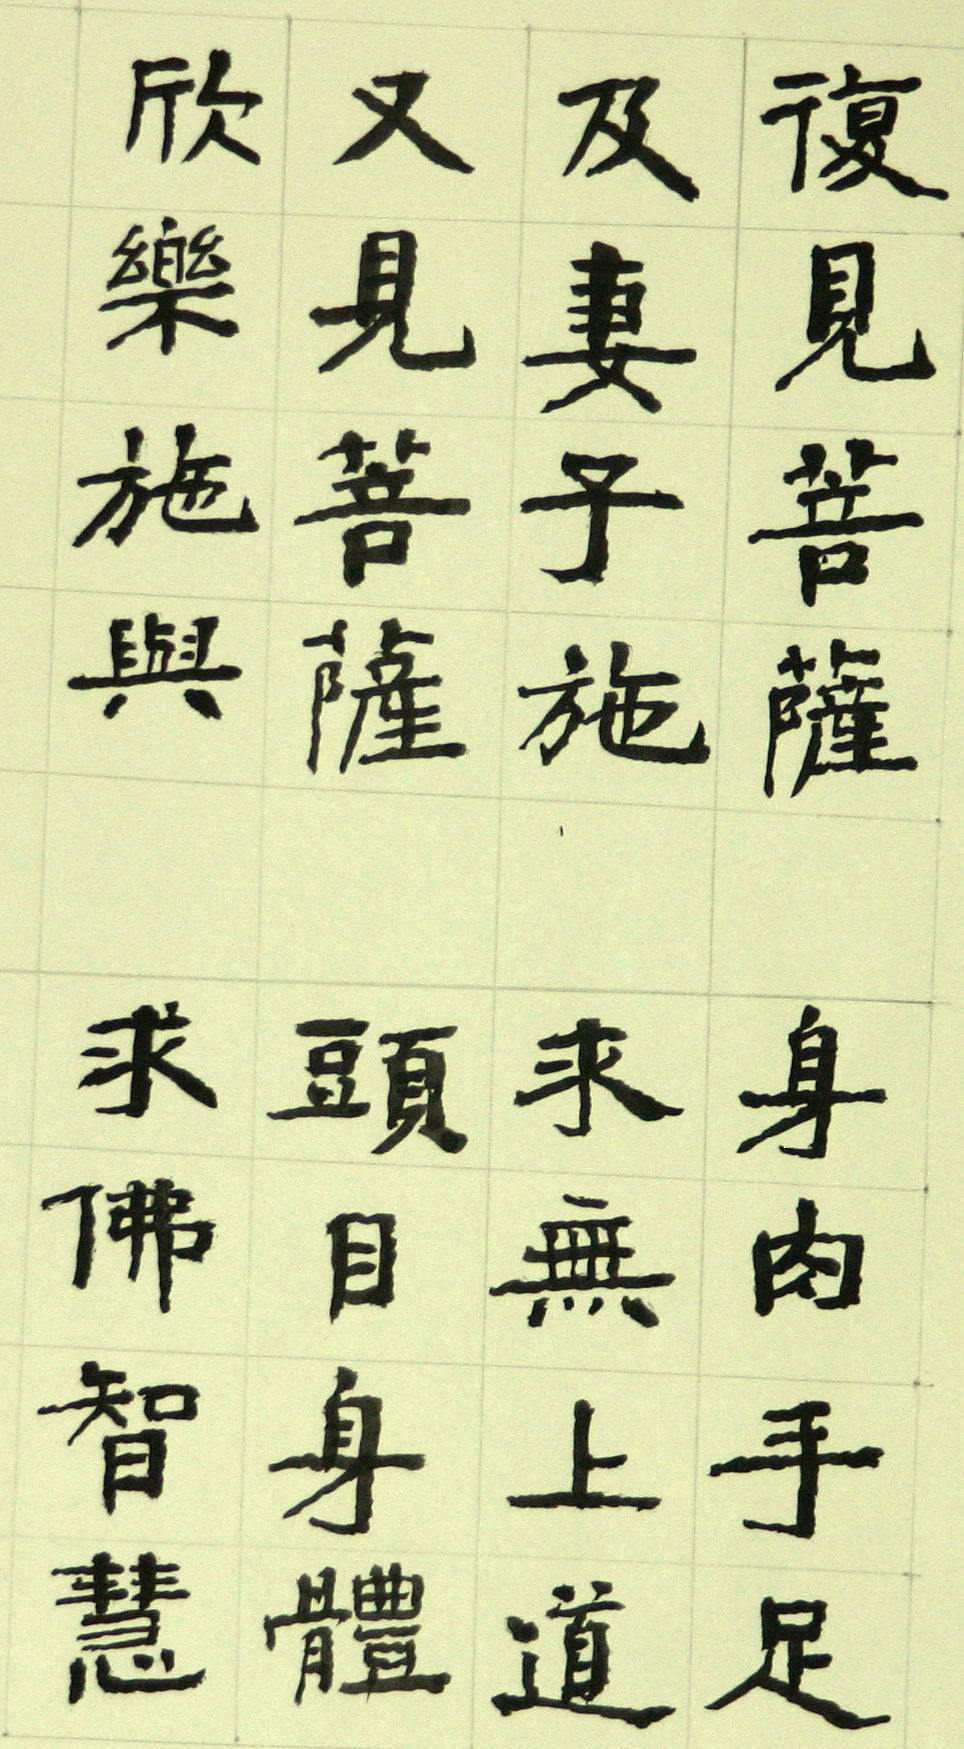 復見菩薩 身肉手足
及妻子施 求無上道
又見菩薩 頭目身體
欣樂施與 求佛智慧